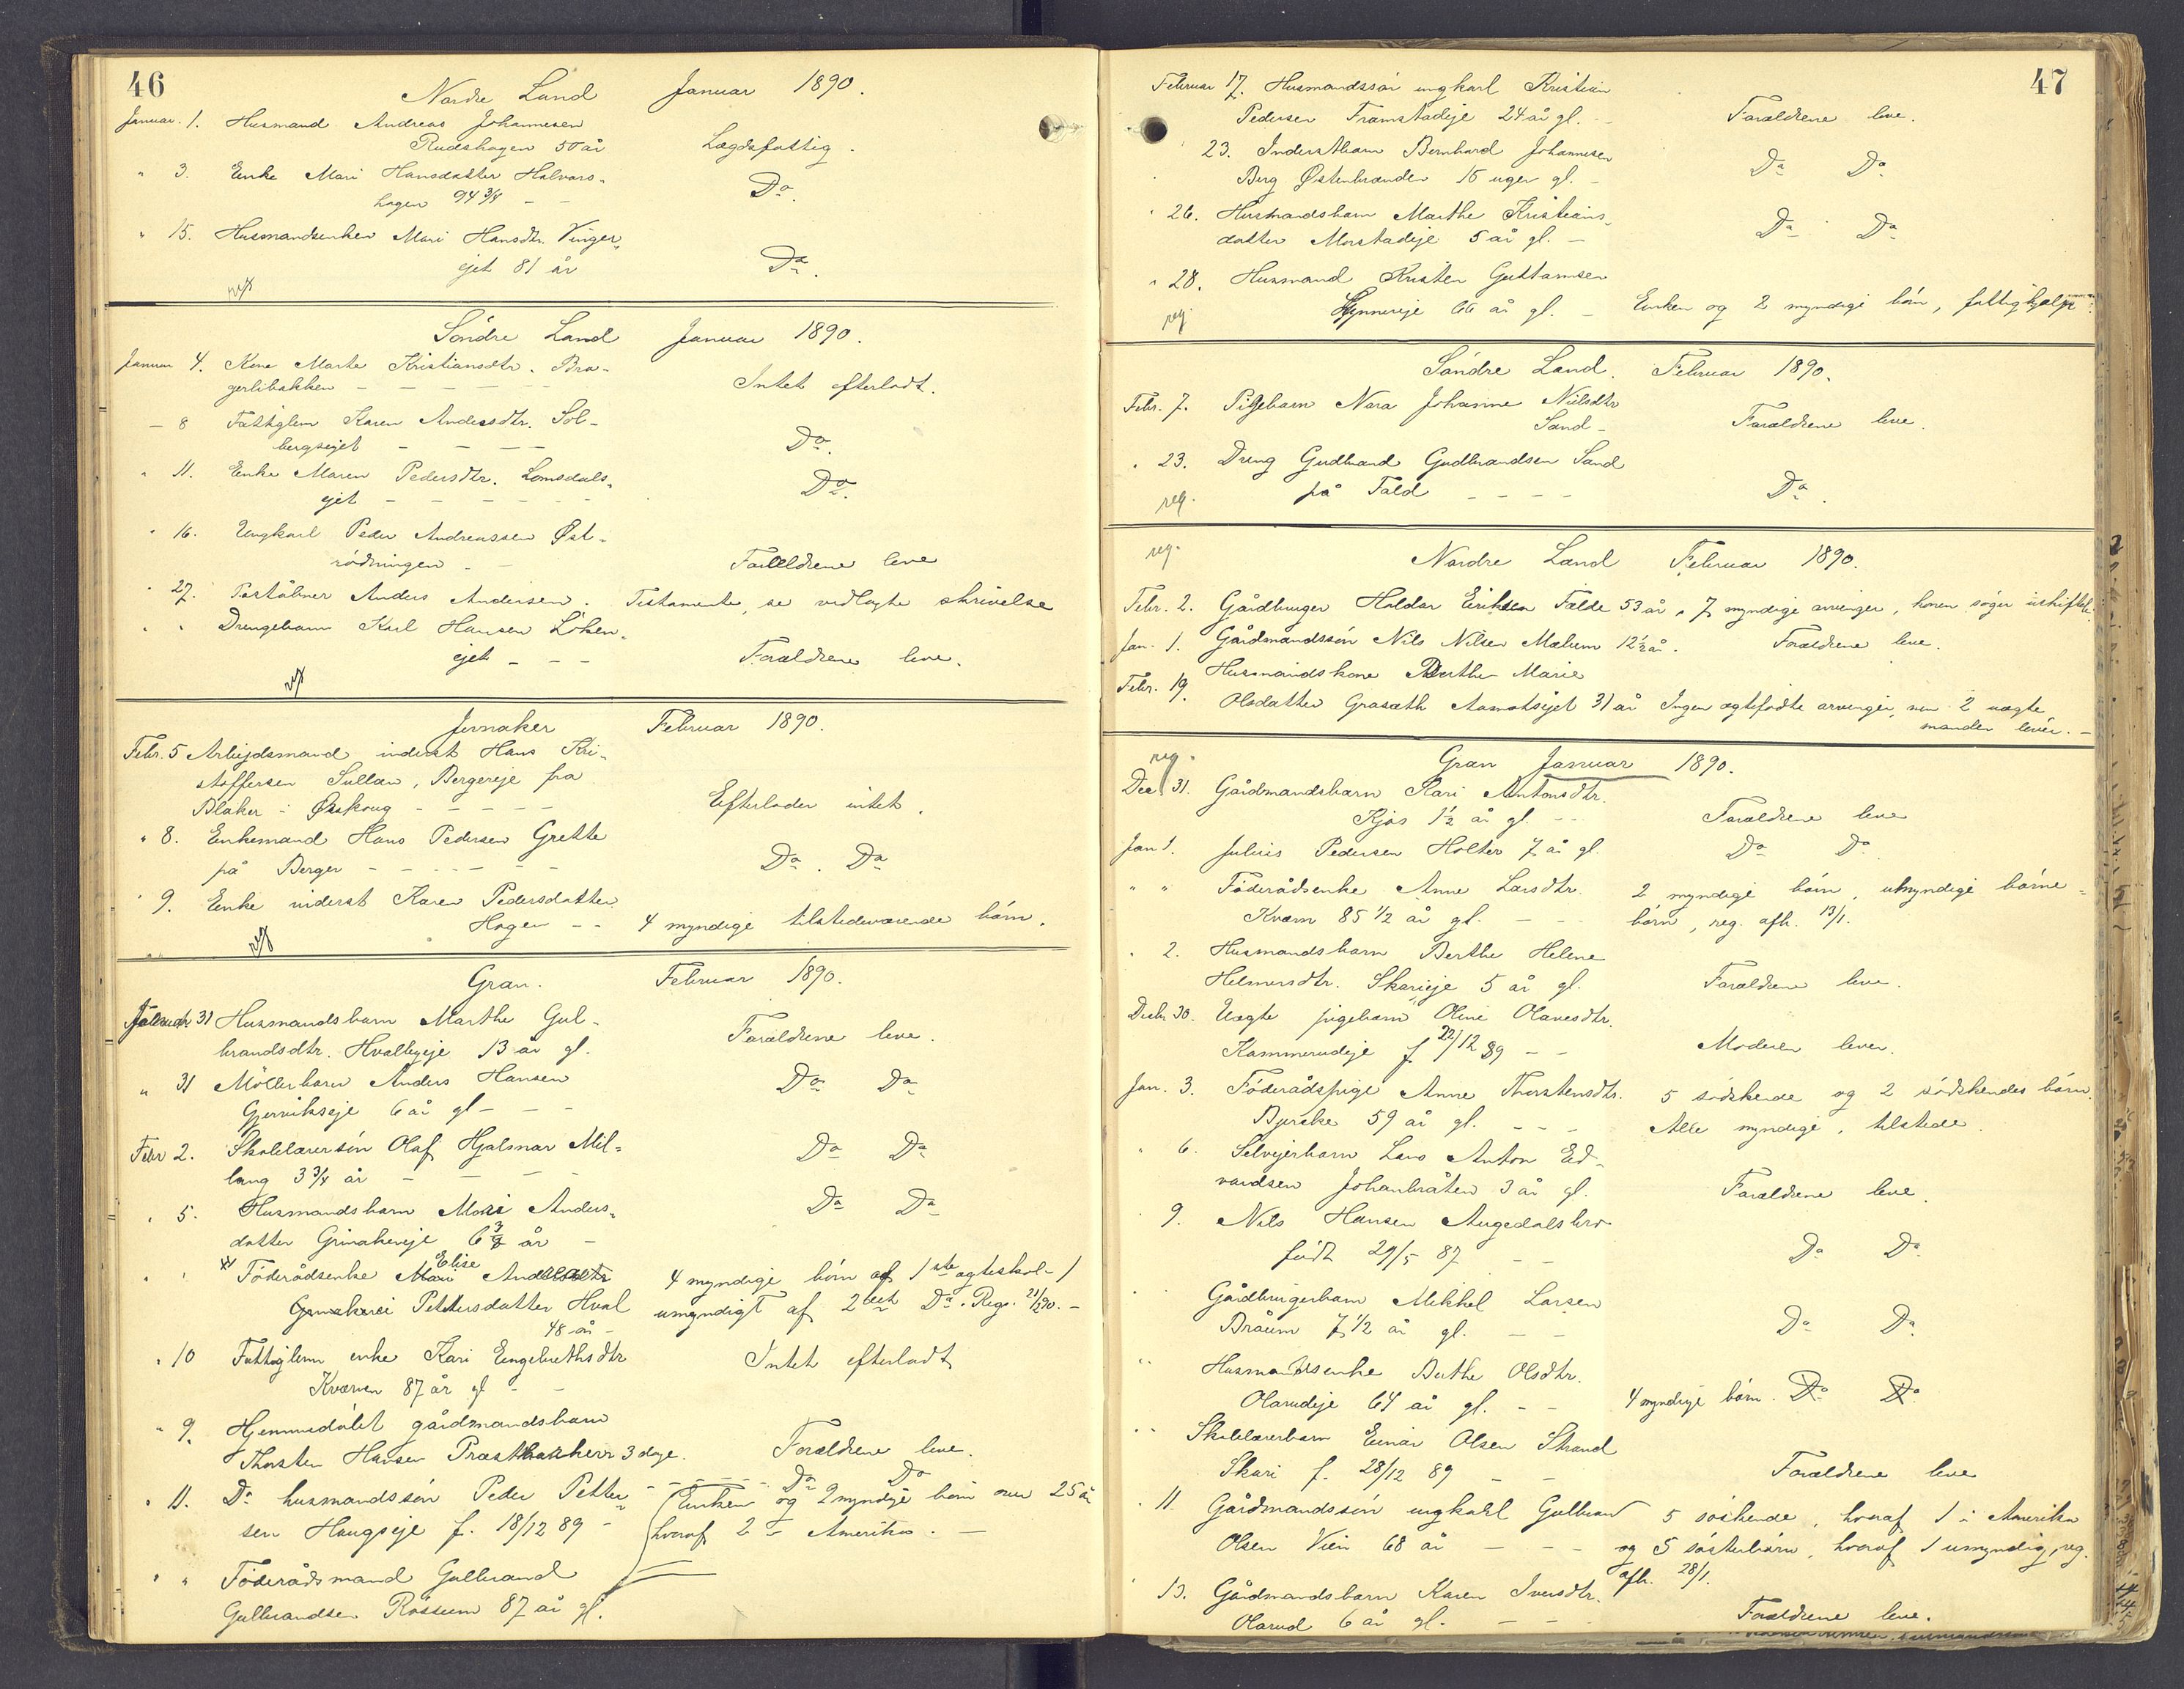 46
Nordre Land Januar 1890.
Januar. 1. Husmand Andreas Johannesen
Rudshagen 50 år Lægdsfattig.
" 3. Enke Mari Hansdatter Halvors-
hagen 94 3/4 - - Do.
" 15. Husmandsenken Mari Hansdtr. Vinger-
ejet 81 år Do.
Söndre Land Januar 1890.
Januar 4. Kone Marte Kristiansdtr. Bra-
gerlibakken - - - - Intet efterladt.
- 8 Fattiglem Karen Andersdtr. Sol-
bergsejet - - - - Do.
" 11. Enke Maren Pedersdtr. Lomsdals-
ejet - - - - - Do.
" 16. Ungkarl Peder Andreassen Øst-
rödningen - - Forældrene leve
" 27. Poståbner Anders Andersen. Testamente, se vedlagte skrivelse
" " Drengebarn Karl Hansen Löken-
ejet - - - Forældrene leve.
Jevnaker Februar 1890.
Febr. 5 Arbejdsmand inderst Hans Kri-
stoffersen Sullan, Bergereje fra
Blaker i Øskoug - - - - - Efterlader intet.
" 8. Enkemand Hans Pedersen Grette
på Berger - - - - - Do. Do
" 9. Enke inderst Karen Pedersdatter
Hagen - - 4 myndige tilstedeværende børn.
Gran. Februar 1890.
31 Husmandsbarn Marthe Gul-
brandsdtr. Hvalbyeje 13 år gl. Forældrene leve.
" 31 Möllerbarn Anders Hansen
Gjervikseje 6 år gl - - - Do Do
Febr 2. Skolelærersön Olaf Hjalmar Mil-
lang 3 3/4 år - - - Do Do
" 5. Husmandsbarn Mari Anders-
datter Grinakereje 6 3/4 år - Do Do
" " Föderådsenke Elise
Pettersdatter Hval 4 myndige börn af 1ste ægteskab - 1
48 år - umyndigt af 2det Do. Regs. 21/2 90. -
" 10 Fattiglem enke Kari Engebrethsdtr
Kværn 87 år gl - - Intet efterladt
" 9. Hjemmedöbt gårdmandsbarn
Thorsten Hansen Præstbakken 3 dage. Forældrene leve.
" 11. Do husmandssön Peder Petter- - - - - - Do Do
sen Haugseje f. 18/12 89 - Enken og 2 myndige börn over 25 år
hvoraf 2 i Amerika. -
" " Föderådsmand Gulbrand
Gulbrandsen Rössum 87 år gl.
47
Februar 17. Husmandssön ungkarl Kristian
Pedersen Framstadeje 24 år gl. - Forældrene leve.
23. Inderstbarn Bernhard Johannesen
Berg Østenbranden 15 uger gl. - Do Do
" 26. Husmandsbarn Marthe Kristians-
datter Morstadeje 5 år gl. - Do Do
" 28. Husmand Kristen Guttormsen
reg. Hynnereje 66 år gl. - Enken og 2 myndige börn, fattighjælp.
Söndre Land. Februar 1890.
Febr. 7. Pigebarn Nara Johanne Nielsdtr
Sand - Forældrene leve.
" 23. Dreng Gudbrand Gudbrandsen Sand
reg. på Fald - - - - Do.
reg. Nordre Land Februar 1890.
Febr. 2. Gårdbruger Haldor Eriksen Fælde 53 år, 7 myndige arvinger, konen söger uskiftet.
Jan. 1. Gårdmandssön Nils Nilsen Mælum 12 1/2 år. Forældrene leve.
Febr. 19. Husmandskone Berthe Marie
Olsdatter Graseth Aamotsejet 31 år Ingen ægtefödte arvinger, men 2 uægte
manden lever. -
reg. Gran Januar 1890.
Dec 31. Gårdmandsbarn Kari Antonsdtr.
Kjos 1 1/2 år gl. - - Forældrene leve
Jan 1. Julius Pedersen Holter 7 år gl. Do Do
" " Föderådsenke Anne Larsdtr. 2 myndige börn, umyndige börne-
Kværn 85 1/2 år gl. - - börn, reg. afh. 13/1.
" 2. Husmandsbarn Berthe Helene
Helmersdtr. Skarieje 5 år gl. Forældrene leve.
Decbr 30. Uægte pigebarn Oline Olavesdtr.
Kammerudeje f. 22/12 89 - - Moderen lever.
Jan. 3. Föderådspige Anne Thorstensdtr. 5 södskende og 2 södskendes börn.
Bjerke 59 år gl. - - - Alle myndige, tilstede.
" 6. Selvejerbarn Lars Anton Ed-
vardsen Johanbråten 3 år gl. Forældrene leve.
9. Nils Hansen Augedalsbro
född 29/5 87 - - Do Do
Gårdbrugerbarn Mikkel Larsen
Bråum 7 1/2 år gl. - - Do Do
" " Husmandsenke Berthe Olsdtr.
Olarudeje 64 år gl. - - 4 myndige börn. Do Do
" " Skolelærerbarn Einar Olsen Strand
Skari f. 28/12 89 - - Forældrene leve
" 11. Gårdmandssön ungkarl Gulbrand 5 söskende, hvoraf 1 i Amerika
Olsen Vien 68 år - - - og 5 söskebörn, hvoraf 1 umyndig, reg.
afh. 28/1.
" 13. Gårdmandsbarn Karen Iversdtr.
Olarud 6 år gl. - - Forældrene leve.